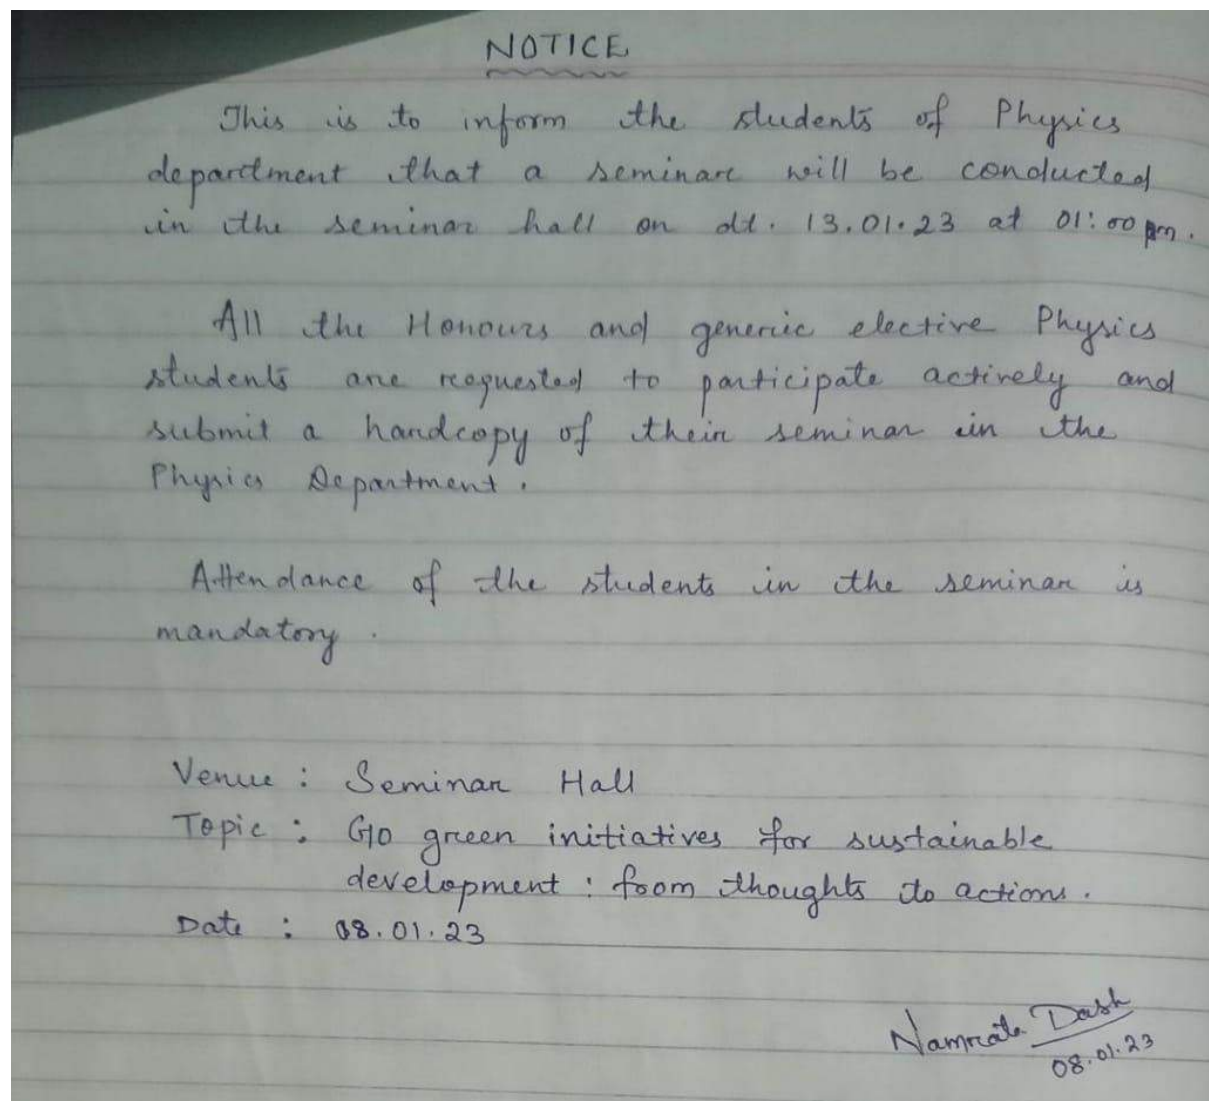 NOTICE
This is to inform the students of Physics
department that a seminar will be conducted
in the seminar hall on dt. 13.01.23 at 01:00 pm.
All the Honours and generic elective Physics
students are requested to participate actively and
submit a hardcopy of their seminar in the
Physics Department.
Attendance of the students in the seminar is
mandatory.
Venue : Seminar Hall
Topic : Go green initiatives for sustainable
development : from thoughts to actions.
Date : 08.01.23
Namrata Dash
08.01.23